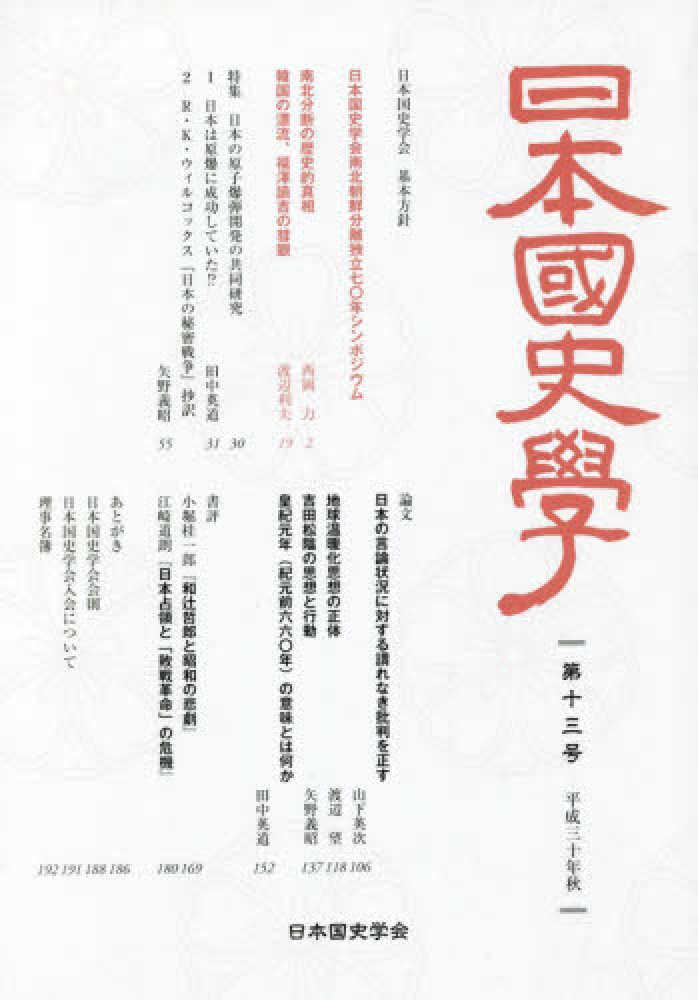 日本國史學
第十三号
平成三十年秋
日本国史学会 基本方針
日本国史学会南北朝鮮分断独立七〇年シンポジウム
南北分断の歴史的真相 西岡 力 2
韓国の漂流、福澤諭吉の慧眼 渡辺利夫 19
特集 日本の原子爆弾開発の共同研究 30
1 日本は原爆に成功していた!? 田中英道 31
2 R・K・ウィルコックス『日本の秘密戦争』抄訳 矢野義昭 55
論文
日本の言論状況に対する謂れなき批判を正す 山下英次 106
地球温暖化思想の正体 渡辺 望 118
吉田松陰の思想と行動 矢野義昭 137
皇紀元年(紀元前六六〇年)の意味とは何か 田中英道 152
書評
小堀桂一郎『和辻哲郎と昭和の悲劇』 169
江崎道朗『日本占領と「敗戦革命」の危機』 180
あとがき 186
日本国史学会会則 188
日本国史学会入会について 191
理事名簿 192
日本国史学会